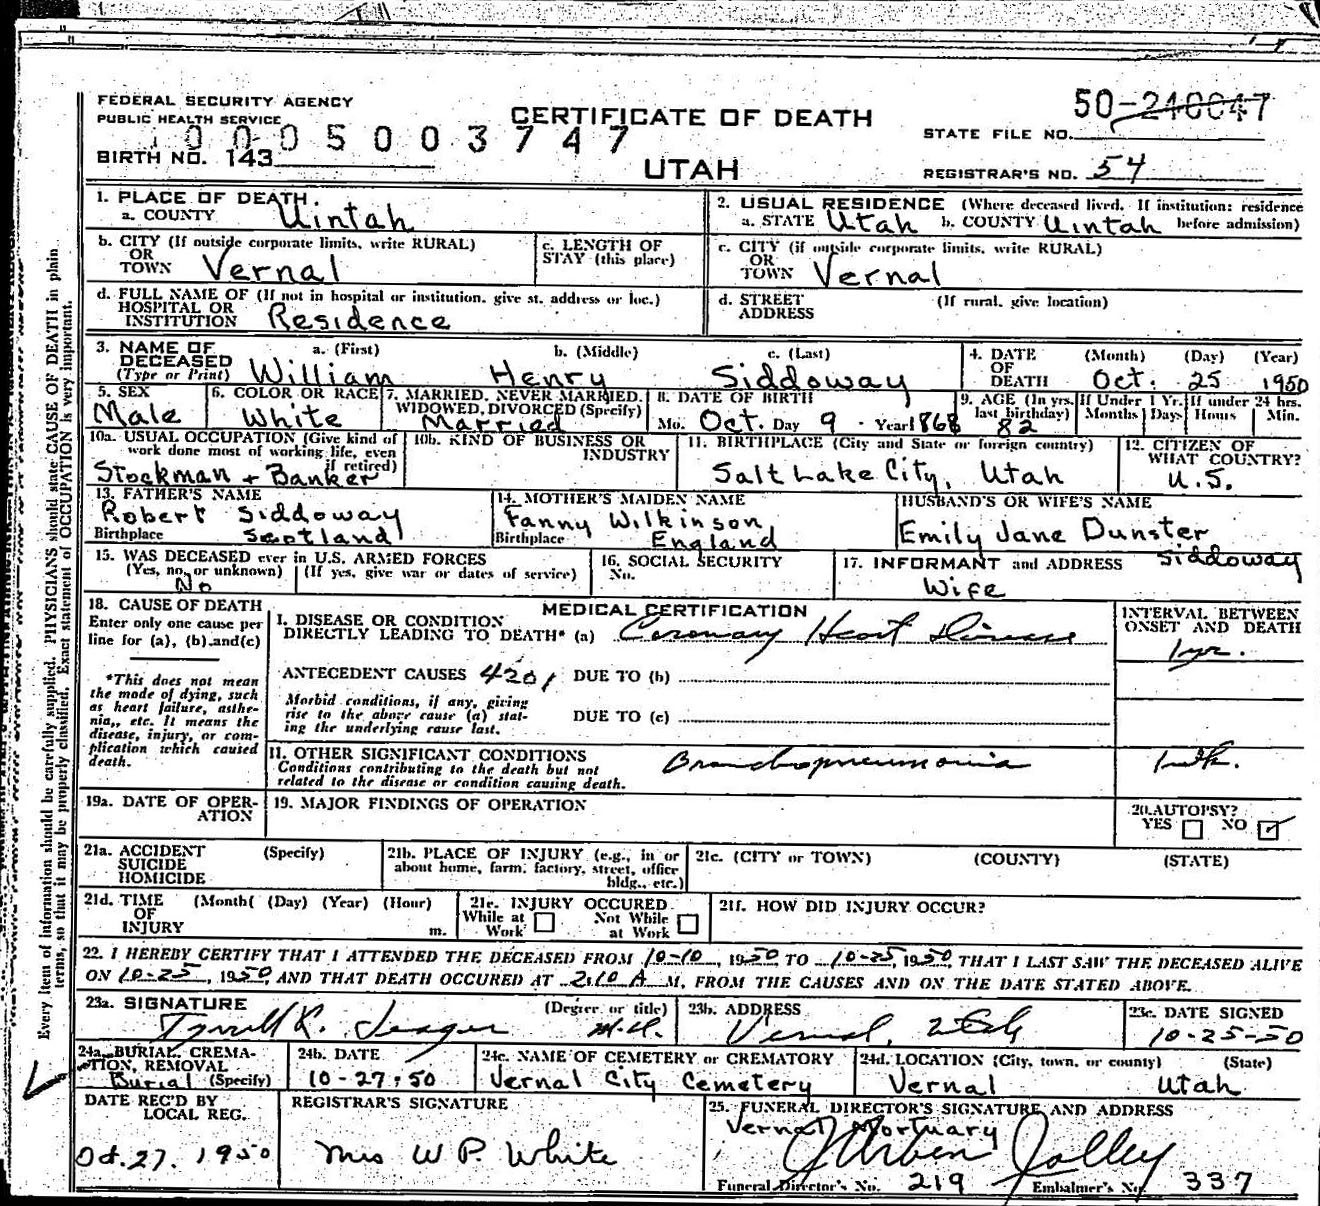 FEDERAL SECURITY AGENCY
PUBLIC HEALTH SERVICE
0005003747
BIRTH NO. 143
CERTIFICATE OF DEATH
UTAH
50-240047
STATE FILE NO.
REGISTRAR'S NO. 54
1. PLACE OF DEATH.
a. COUNTY Uintah
2. USUAL RESIDENCE (Where deceased lived. If institution: residence before admission)
a. STATE Utah b. COUNTY Uintah
b. CITY (If outside corporate limits, write RURAL)
OR
TOWN Vernal
c. LENGTH OF
STAY (this place)
c. CITY (if outside corporate limits, write RURAL)
OR
TOWN Vernal
d. FULL NAME OF (If not in hospital or institution. give st. address or loc.)
HOSPITAL OR
INSTITUTION Residence
d. STREET (If rural, give location)
ADDRESS
3. NAME OF DECEASED (Type or Print)
a. (First) b. (Middle) c. (Last)
William Henry Siddoway
4. DATE OF DEATH (Month) (Day) (Year)
Oct. 25 1950
5. SEX
Male
6. COLOR OR RACE
White
7. MARRIED, NEVER MARRIED,
WIDOWED, DIVORCED (Specify)
Married
8. DATE OF BIRTH
Mo. Oct. Day 9 Year 1868
9. AGE (In yrs. last birthday) 82
If Under 1 Yr. Months Days
If under 24 hrs. Hours Min.
10a. USUAL OCCUPATION (Give kind of
work done most of working life, even
if retired)
Stockman + Banker
10b. KIND OF BUSINESS OR
INDUSTRY
11. BIRTHPLACE (City and State or foreign country)
Salt Lake City, Utah
12. CITIZEN OF
WHAT COUNTRY?
U.S.
13. FATHER'S NAME
Robert Siddoway
Birthplace Scotland
14. MOTHER'S MAIDEN NAME
Fanny Wilkinson
Birthplace England
HUSBAND'S OR WIFE'S NAME
Emily Jane Dunster
Siddoway
15. WAS DECEASED ever in U.S. ARMED FORCES
(Yes, no, or unknown) (If yes, give war or dates of service)
No
16. SOCIAL SECURITY
No.
17. INFORMANT and ADDRESS
Wife
18. CAUSE OF DEATH
Enter only one cause per
line for (a), (b), and (c)
*This does not mean
the mode of dying, such
as heart failure, asthe-
nia,, etc. It means the
disease, injury, or com-
plication which caused
death.
MEDICAL CERTIFICATION
I. DISEASE OR CONDITION
DIRECTLY LEADING TO DEATH* (a) Coronary Heart Disease
INTERVAL BETWEEN
ONSET AND DEATH
1 yr.
ANTECEDENT CAUSES 4201 DUE TO (b)
Morbid conditions, if any, giving
rise to the above cause (a) stat-
ing the underlying cause last.
DUE TO (c)
11. OTHER SIGNIFICANT CONDITIONS
Conditions contributing to the death but not
related to the disease or condition causing death.
Bronchopneumonia
1 wk.
19a. DATE OF OPER-
ATION
19. MAJOR FINDINGS OF OPERATION
20. AUTOPSY?
YES NO
21a. ACCIDENT (Specify)
SUICIDE
HOMICIDE
21b. PLACE OF INJURY (e.g., in or
about home, farm, factory, street, office
bldg., etc.)
21c. (CITY or TOWN) (COUNTY) (STATE)
21d. TIME (Month( (Day) (Year) (Hour)
OF
INJURY m.
21e. INJURY OCCURED
While at Work Not While at Work
21f. HOW DID INJURY OCCUR?
22. I HEREBY CERTIFY THAT I ATTENDED THE DECEASED FROM 10-10, 1950 TO 10-25, 1950, THAT I LAST SAW THE DECEASED ALIVE
ON 10-25, 1950 AND THAT DEATH OCCURED AT 2:10 A M, FROM THE CAUSES AND ON THE DATE STATED ABOVE.
23a. SIGNATURE (Degree or title)
Tyrrell R. Seager M.D.
23b. ADDRESS
Vernal, Utah
23c. DATE SIGNED
10-25-50
24a. BURIAL, CREMA-
TION, REMOVAL
Burial (Specify)
24b. DATE
10-27-50
24c. NAME OF CEMETERY or CREMATORY
Vernal City Cemetery
24d. LOCATION (City, town, or county) (State)
Vernal Utah
DATE REC'D BY
LOCAL REG.
Oct. 27, 1950
REGISTRAR'S SIGNATURE
Mrs W P. White
25. FUNERAL DIRECTOR'S SIGNATURE AND ADDRESS
Vernal Mortuary
Jolley
Funeral Director's No. 219 Embalmer's No. 337
Every item of information should be carefully supplied. PHYSICIANS should state CAUSE OF DEATH in plain
terms, so that it may be properly classified. Exact statement of OCCUPATION is very important.